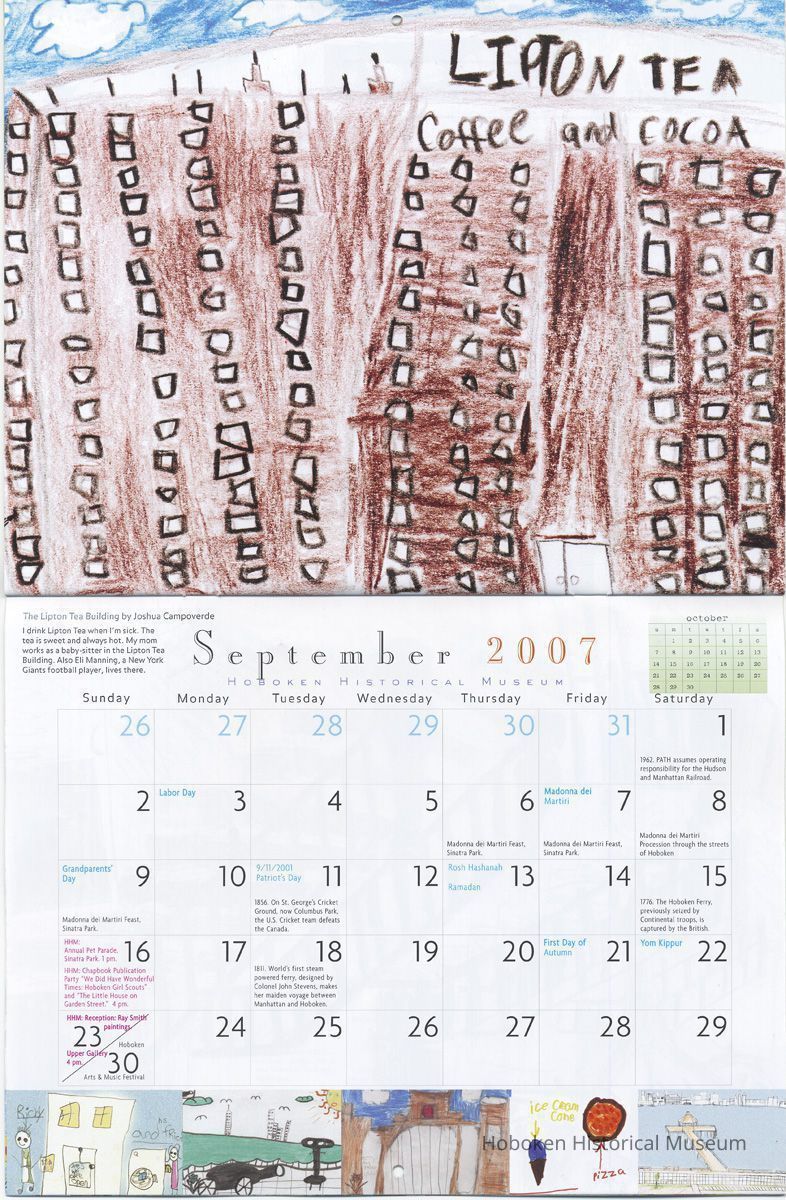 LIPTON TEA
Coffee and COCOA
The Lipton Tea Building by Joshua Campoverde
I drink Lipton Tea when I'm sick. The
tea is sweet and always hot. My mom
works as a baby-sitter in the Lipton Tea
Building. Also Eli Manning, a New York
Giants football player, lives there.
September 2007
HOBOKEN HISTORICAL MUSEUM
october
s m t w t f s
1 2 3 4 5 6
7 8 9 10 11 12 13
14 15 16 17 18 19 20
21 22 23 24 25 26 27
28 29 30
Sunday Monday Tuesday Wednesday Thursday Friday Saturday
26 27 28 29 30 31 1
1962. PATH assumes operating
responsibility for the Hudson
and Manhattan Railroad.
2
Labor Day 3
4
5
6
Madonna dei Martiri Feast,
Sinatra Park.
Madonna dei
Martiri 7
Madonna dei Martiri Feast,
Sinatra Park.
8
Madonna dei Martiri
Procession through the streets
of Hoboken
Grandparents'
Day 9
Madonna dei Martiri Feast,
Sinatra Park.
10
9/11/2001
Patriot's Day 11
1856. On St. George's Cricket
Ground, now Columbus Park,
the U.S. Cricket team defeats
the Canada.
12
Rosh Hashanah
Ramadan
13
14
15
1776. The Hoboken Ferry,
previously seized by
Continental troops, is
captured by the British.
HHM:
Annual Pet Parade,
Sinatra Park. 1 pm.
16
HHM: Chapbook Publication
Party "We Did Have Wonderful
Times: Hoboken Girl Scouts"
and "The Little House on
Garden Street." 4 pm.
17
18
1811. World's first steam
powered ferry, designed by
Colonel John Stevens, makes
her maiden voyage between
Manhattan and Hoboken.
19
20
First Day of
Autumn 21
Yom Kippur 22
HHM: Reception: Ray Smith
paintings,
23
Upper Gallery
4 pm.
Hoboken
30
Arts & Music Festival
24
25
26
27
28
29
Ricky
ice cream
cone
pizza
Hoboken Historical Museum